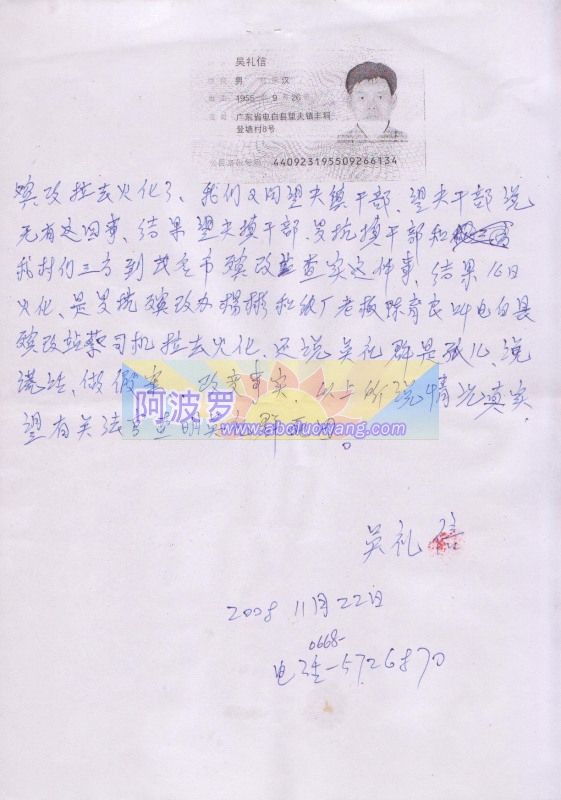 吴礼信
性别 男 民族 汉
出生 1955年9月26日
住址 广东省电白县望夫镇丰垌
登塘村8号
公民身份号码 440923195509266134
殡改拉去火化了、我们又问望夫镇干部、望夫干部说
无有这回事、结果望夫填干部、旻抗填干部和
我村们三方到茂名市殡改查实这件事、结果16日
火化、是旻抗殡改办杨彬和纸厂老板陈育良叫电白县
殡改站蔡司机拉去火化、还说吴礼群是孤儿、说
谎话、做假 改变事实、以上所说情况真实、
望有关 查明
阿波罗
www.aboluowang.com
吴礼信
2008 11月22日
0668-
电话-5726870